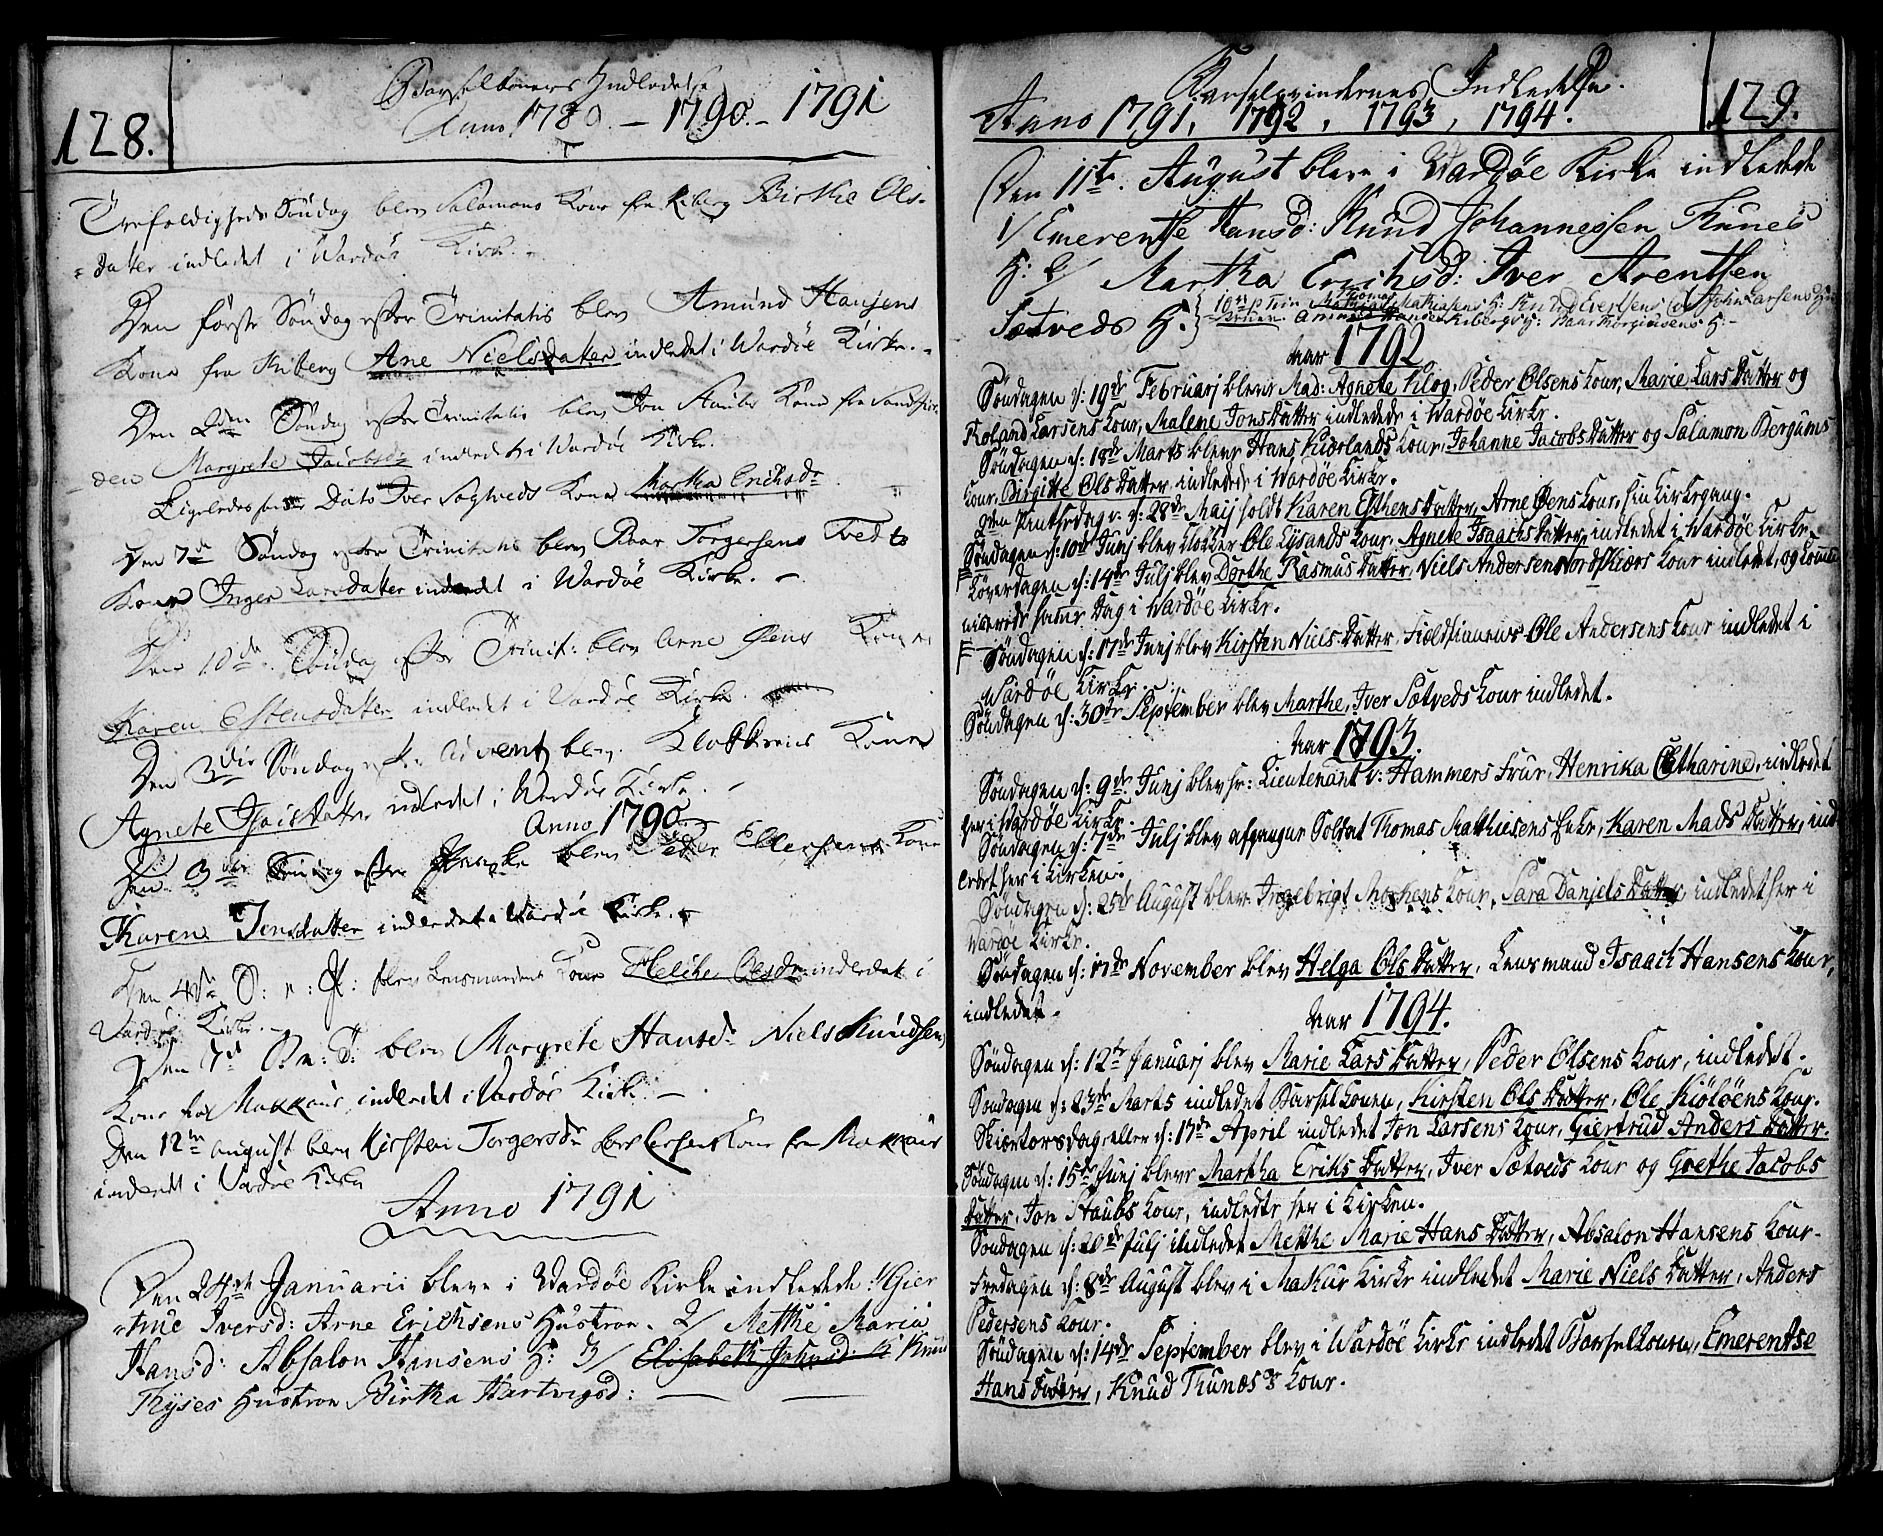 128.
Barselkoners Indledelse
Anno 1789. – 1790. – 1791
Trefoldigheds Søndag blev Salamons Kone fra Kiberg Birthe Ols-
datter indledet i Wardøe Kirke. –
Den første Søndag efter Trinitatis blev Amund Hansens
Kone fra Kiberg Ane Nielsdatter indledet i Wardøe Kirke. –
Den 2den Søndag efter Trinitatis blev Jon Staubs Kone fra
den Margrete Jacobsdr indledet i Wardøe Kirke.
Ligeledes Dato Iver Sætveds Kone Martha Erichsdr
Den 7de Søndag efter Trinitatis blev Baar Torgersens Tvedts
Kone Inger Larsdatter indledet i Wardøe Kirke. –
Den 10de Søndag efter Trinit: blev Arne Øens Kone
Karen Estensdatter indledet i Vardøe Kirke.
Den 3die Søndag Advent blev Klokkerens Kone
Agnete Isaisdatter indledet i Wardøe Kirke. –
Anno 1790
Den 3die Søndag efter Paaske blev Peder Ellersens Kone
Karen Jensdatter indledet i Wardøe Kirke. –
Den 4de S: e: P: blev Lensmandens Kone Helche Olsdr indledet i
Vardøe Kirke. –
Den 7de blev Margrete Hansdr Niels Knudsens
Kone fra Makkaur indledet i Vardøe Kirke. –
Den 12te August blev Kirsten Torgersdr Lars Larsens Kone fra Makkaur
indledet i Vardøe Kirke
Anno 1791
Den 24de Januarii bleve i Wardøe Kirke indledede 1/ Gier-
true Iversd: Arne Erichsens Hustroe. 2/ Metthe Maria
Hansd: Absalon Hansens H: 3/ Elisabeth Johnsd: K Knud
Thyses Hustroe Birtha Hartvigsd: –
129.
Barselqvindernes Indledelse.
Anno 1791, 1792, 1793, 1794.
Den 11te August bleve i Wardøe Kirke indledede
1/ Emerentse Hansd: Knud Johannessen Tunes
H: 2/ Martha Erichsd: Iver Arentsen
Sætveds H.
Aar 1792
Søndagen d: 19de Februarj bleve Mad: Agnete Klog, Peder Olsens Kone, Marie Lars Datter og
Roland Larsens Kone, Malene Jons Datter indledede i Wardøe Kirke.
Søndagen d: 18de Marts bleve Hans Kiørlands Kone, Johanne Jacobs Datter og Salamon Bergums
Kone, Birgitte Ols Datter indledede i Wardøe Kirke.
2den Pintsedag d: 28de Maij holdt Karen Esthens Datter, Arne Øens Kone, sin Kirkegang.
Søndagen d: 10de Junj blev Klokker Ole Lysands Kone, Agnete Isaachs Datter, indledet i Wardøe Kirke.
Løverdagen d: 14de Julj blev Dorthe Rasmus Datter, Niels Andersen Nordskiærs Kone indledet, og
samme Dag i Wardøe Kirke.
Søndagen d: 17de Junj blev Kirsten Niels Datter, Ole Andersens Kone indledet i
Wardøe Kirke.
Søndagen d: 30te September blev Marthe, Iver Sætveds Kone indledet.
Aar 1793.
Søndagen d: 9de Junj blev hr: Lieutenant v: Hammers Frue, Henrika Catharine, indledet
her i Wardøe Kirke.
Søndagen d: 7de Julj blev afgangne Soldat Thomas Matthiesens Enke, Karen Mads Datter, ind-
ledet her i Kirken.
Søndagen d: 25de August blev Ingebrigt Moshens Kone, Sara Daniels Datter, indledet her i
Vardøe Kirke.
Søndagen d: 17de November blev Helga Ols Datter, Lensmand Isaach Hansens Kone,
indledet.
Aar 1794.
Søndagen d: 12te Januarj blev Marie Lars Datter, Peder Olsens Kone, indledet.
Søndagen d: 23de Marts indledet Barsel Konen, Kirsten Ols Datter, Ole Kiøløens Kone.
Skiertorsdag eller d: 17de April indledet Jon Larsens Kone, Giertrud Anders Datter.
Søndagen d: 15de Junj bleve Martha Eriks Datter, Iver Sætveds Kone og Grethe Jacobs
Datter, Jon Staubs Kone, indledte her i Kirken.
Søndagen d: 20de Julj indledet Metthe Marie Hans Datter, Absalon Hansens Kone.
Fredagen d: 8de August blev i Makur Kirke indledet Marie Niels Datter, Anders
Pedersens Kone.
Søndagen d: 14de September blev i Wardøe Kirke indledet Barselkonen, Emerentse
Hans Datter, Knud Thunæs's Kone.